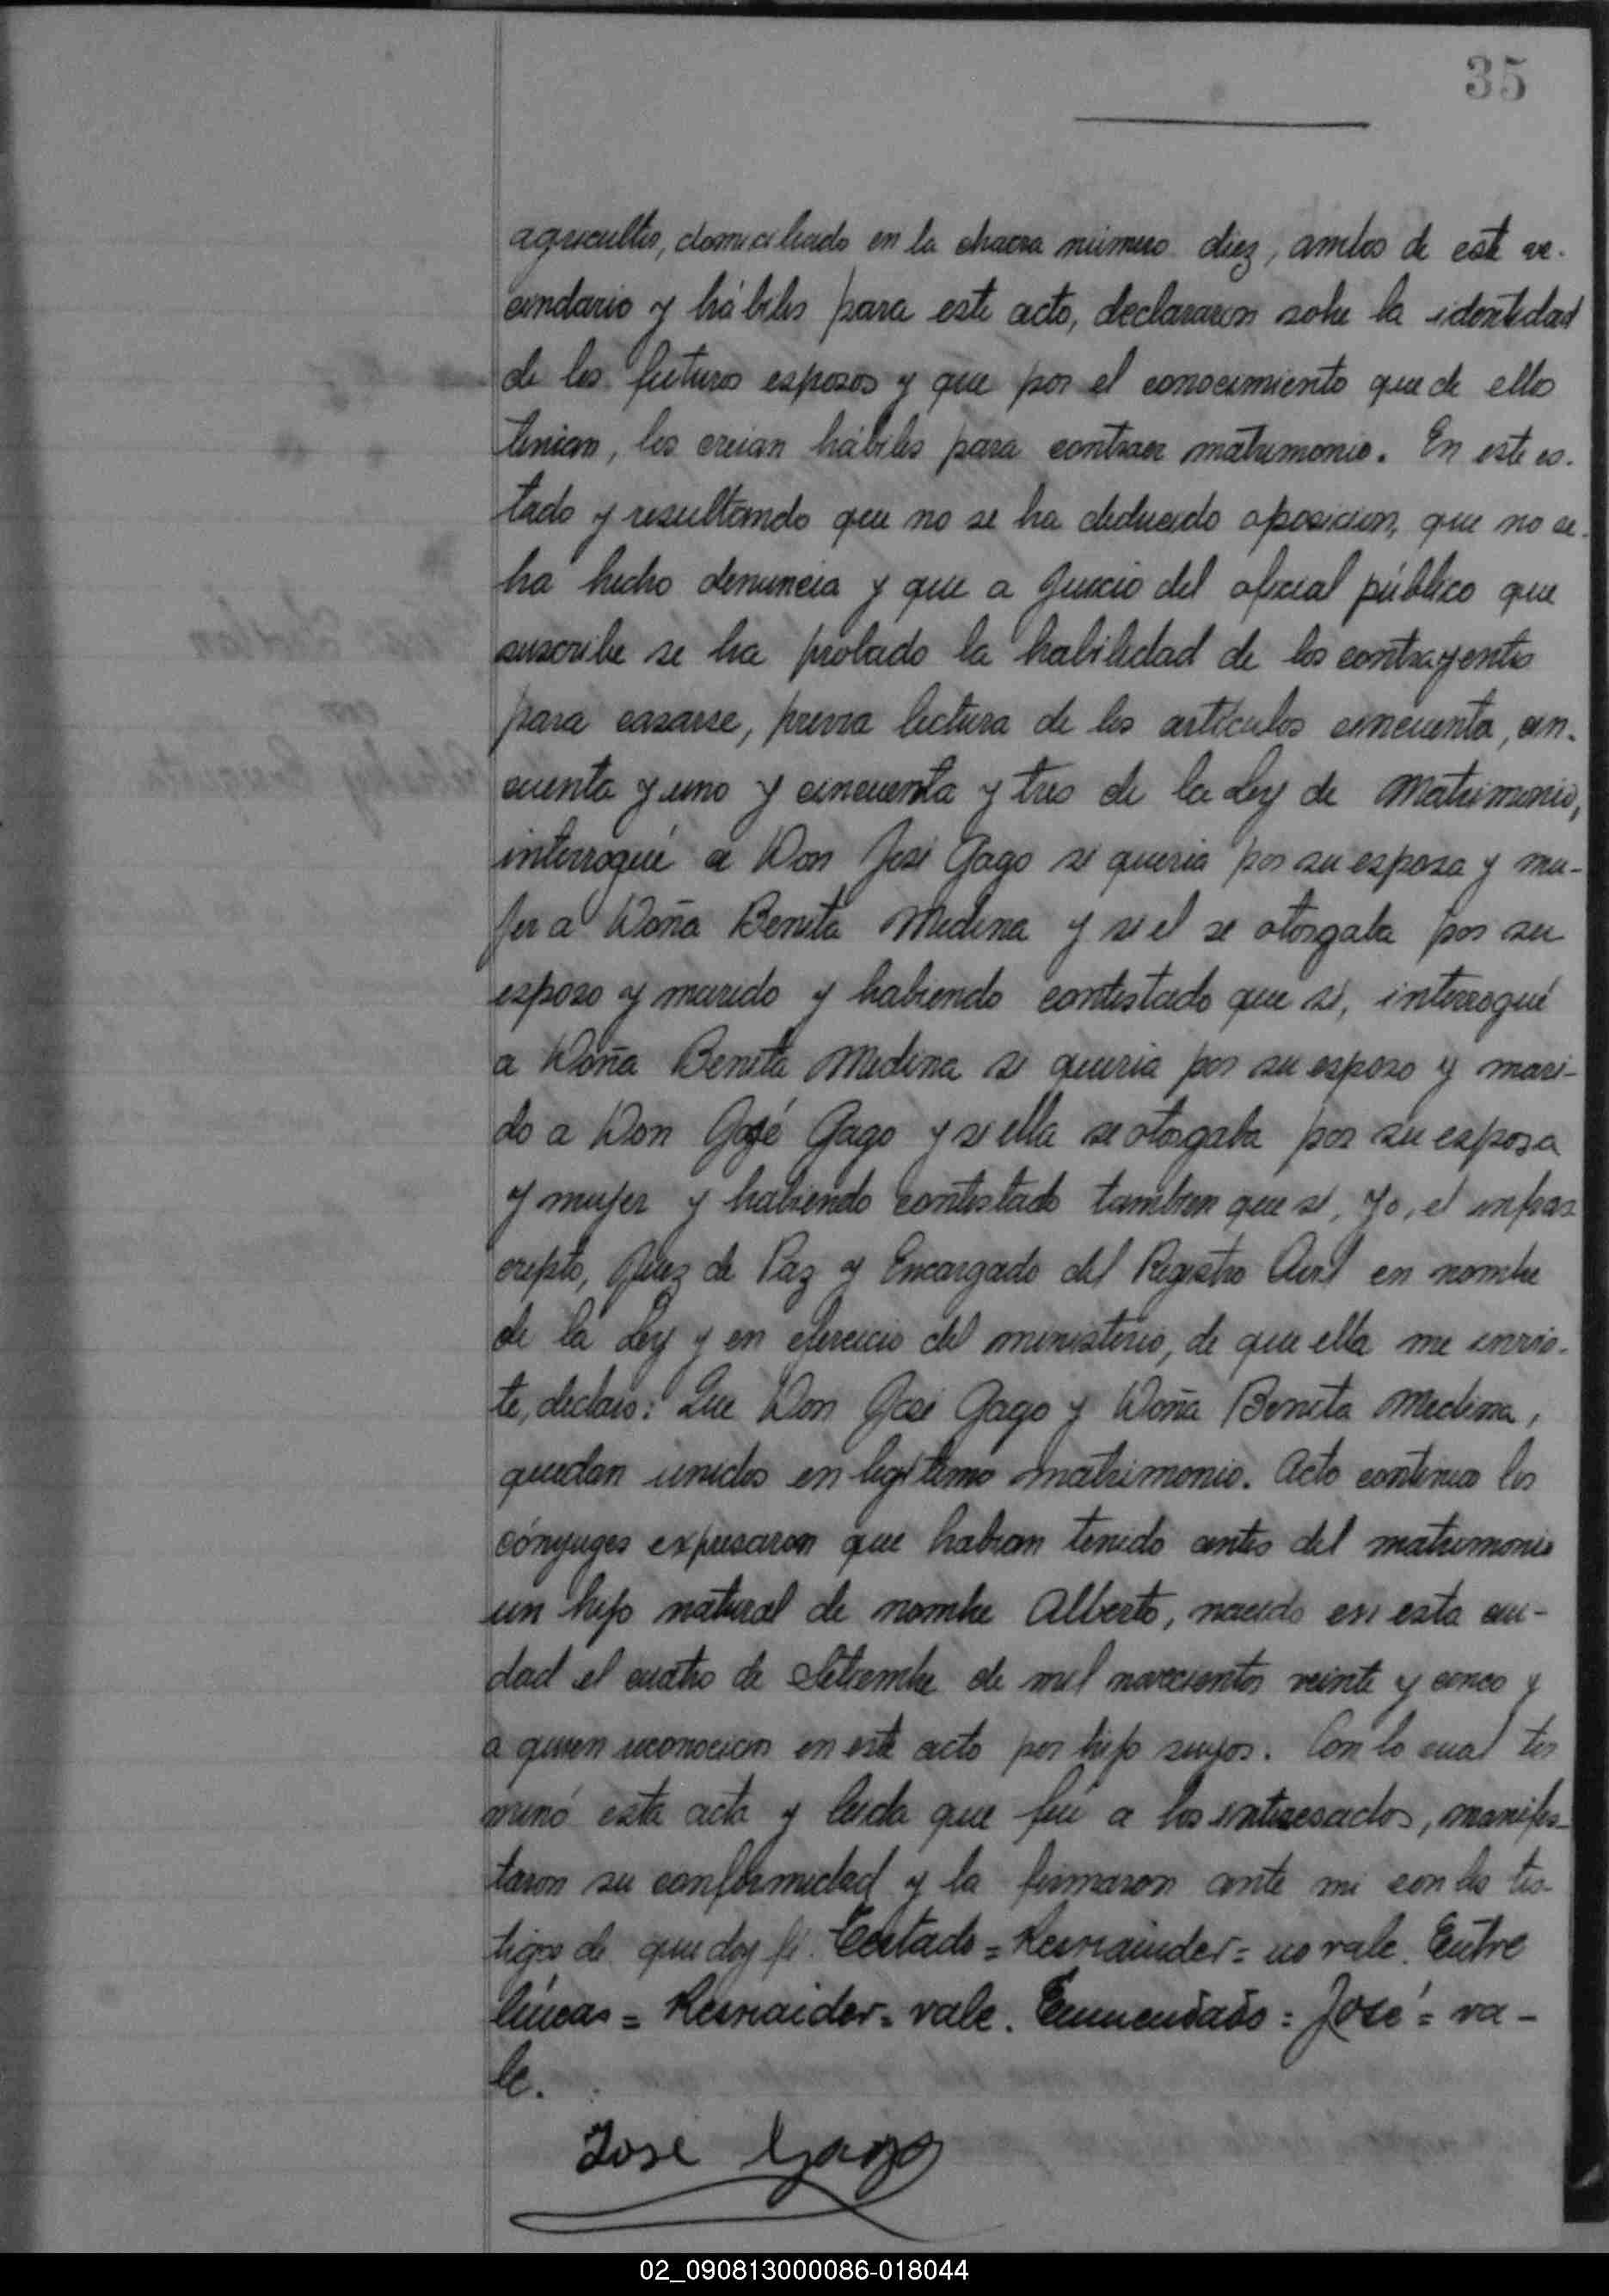 35
agricultor, domiciliado en la chacra número diez, ambos de este ve-
cindario y hábiles para este acto, declararon sobre la identidad
de los futuros esposos y que por el conocimiento que de ellos
tenian, los creian hábiles para contraer matrimonio. En este es-
tado y resultando que no se ha deducido oposicion, que no se
ha hecho denuncia y que a juicio del oficial público que
suscribe se ha probado la habilidad de los contrayentes
para casarse, previa lectura de los artículos cincuenta, cin-
cuenta y uno y cincuenta y tres de la Ley de Matrimonio,
interrogué a Don José Gago si queria por su esposa y mu-
jer a Doña Benita Medina y si el se otorgaba por su
esposo y marido y habiendo contestado que si, interrogué
a Doña Benita Medina si queria por su esposo y mari-
do a Don José Gago y si ella se otorgaba por su esposa
y mujer y habiendo contestado tambien que si, Yo, el infras
cripto, Juez de Paz y Encargado del Registro Civil en nombre
de la Ley y en ejercicio del ministerio, de que ella me invis-
te, declaro: Que Don José Gago y Doña Benita Medina,
quedan unidos en legitimo matrimonio. Acto continuo los
cónyuges expresaron que habian tenido antes del matrimonio
un hijo natural de nombre Alberto, nacido en esta ciu-
dad el cuatro de Setiembre de mil novecientos veinte y cinco y
a quien reconocian en este acto por hijo suyos. Con lo cual ter
minó esta acta y leida que fué a los interesados, manifes-
taron su conformidad y la firmaron ante mi con los tes-
tigos de que doy fé. Testado = = no vale. Entre
líneas = = vale. Enmendado = José = va-
le.
José Gago
02_090813000086-018044